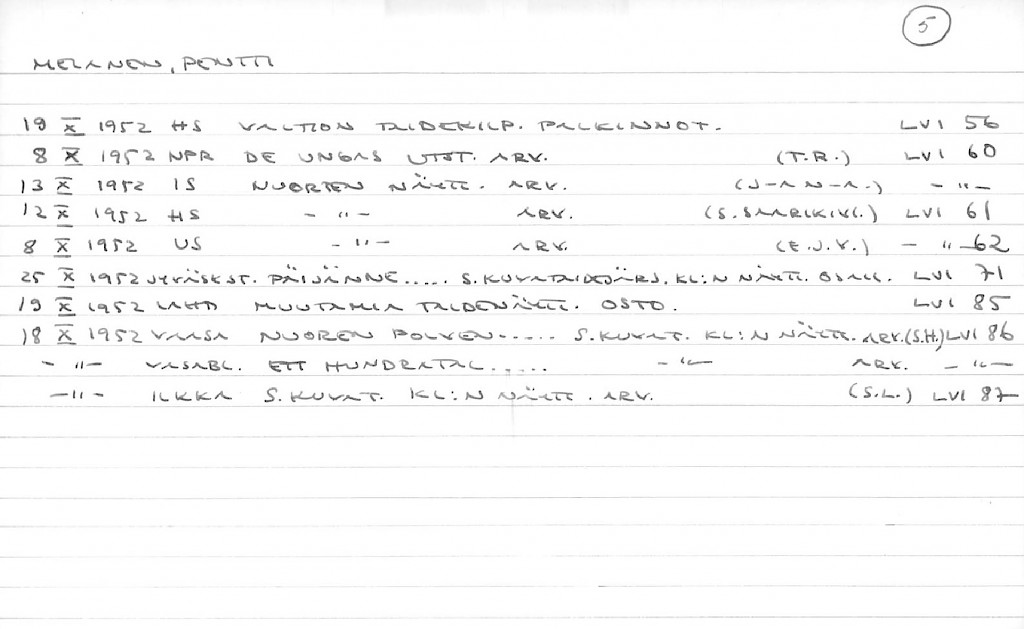 5
MELANEN, PENTTI
19 X 1952 HS VALTION TAIDEKILP. PALKINNOT. LVI 56
8 X 1952 NPR DE UNGAS UTST. ARV. (T.R.) LVI 60
13 X 1952 IS NUORTEN NÄYTT. ARV. (J-A N-A.) -"-
12 X 1952 HS -"- ARV. (S. SAARIKIVI.) LVI 61
8 X 1952 US -"- ARV. (E.J.V.) -"- 62
25 X 1952 JYVÄSKST. PÄIJÄNNE..... S. KUVATAIDEJÄRJ. KL:N NÄYTT. OSALL. LVI 71
19 X 1952 LAHD MUUTAMIA TAIDENÄYTT. OSTO. LVI 85
18 X 1952 VAASA NUOREN POLVEN..... S. KUVAT. KL:N NÄYTT. ARV. (S.H.) LVI 86
-"- VASABL. ETT HUNDRATAL..... -"- ARV. -"-
-"- ILKKA S. KUVAT. KL:N NÄYTT. ARV. (S.L.) LVI 87